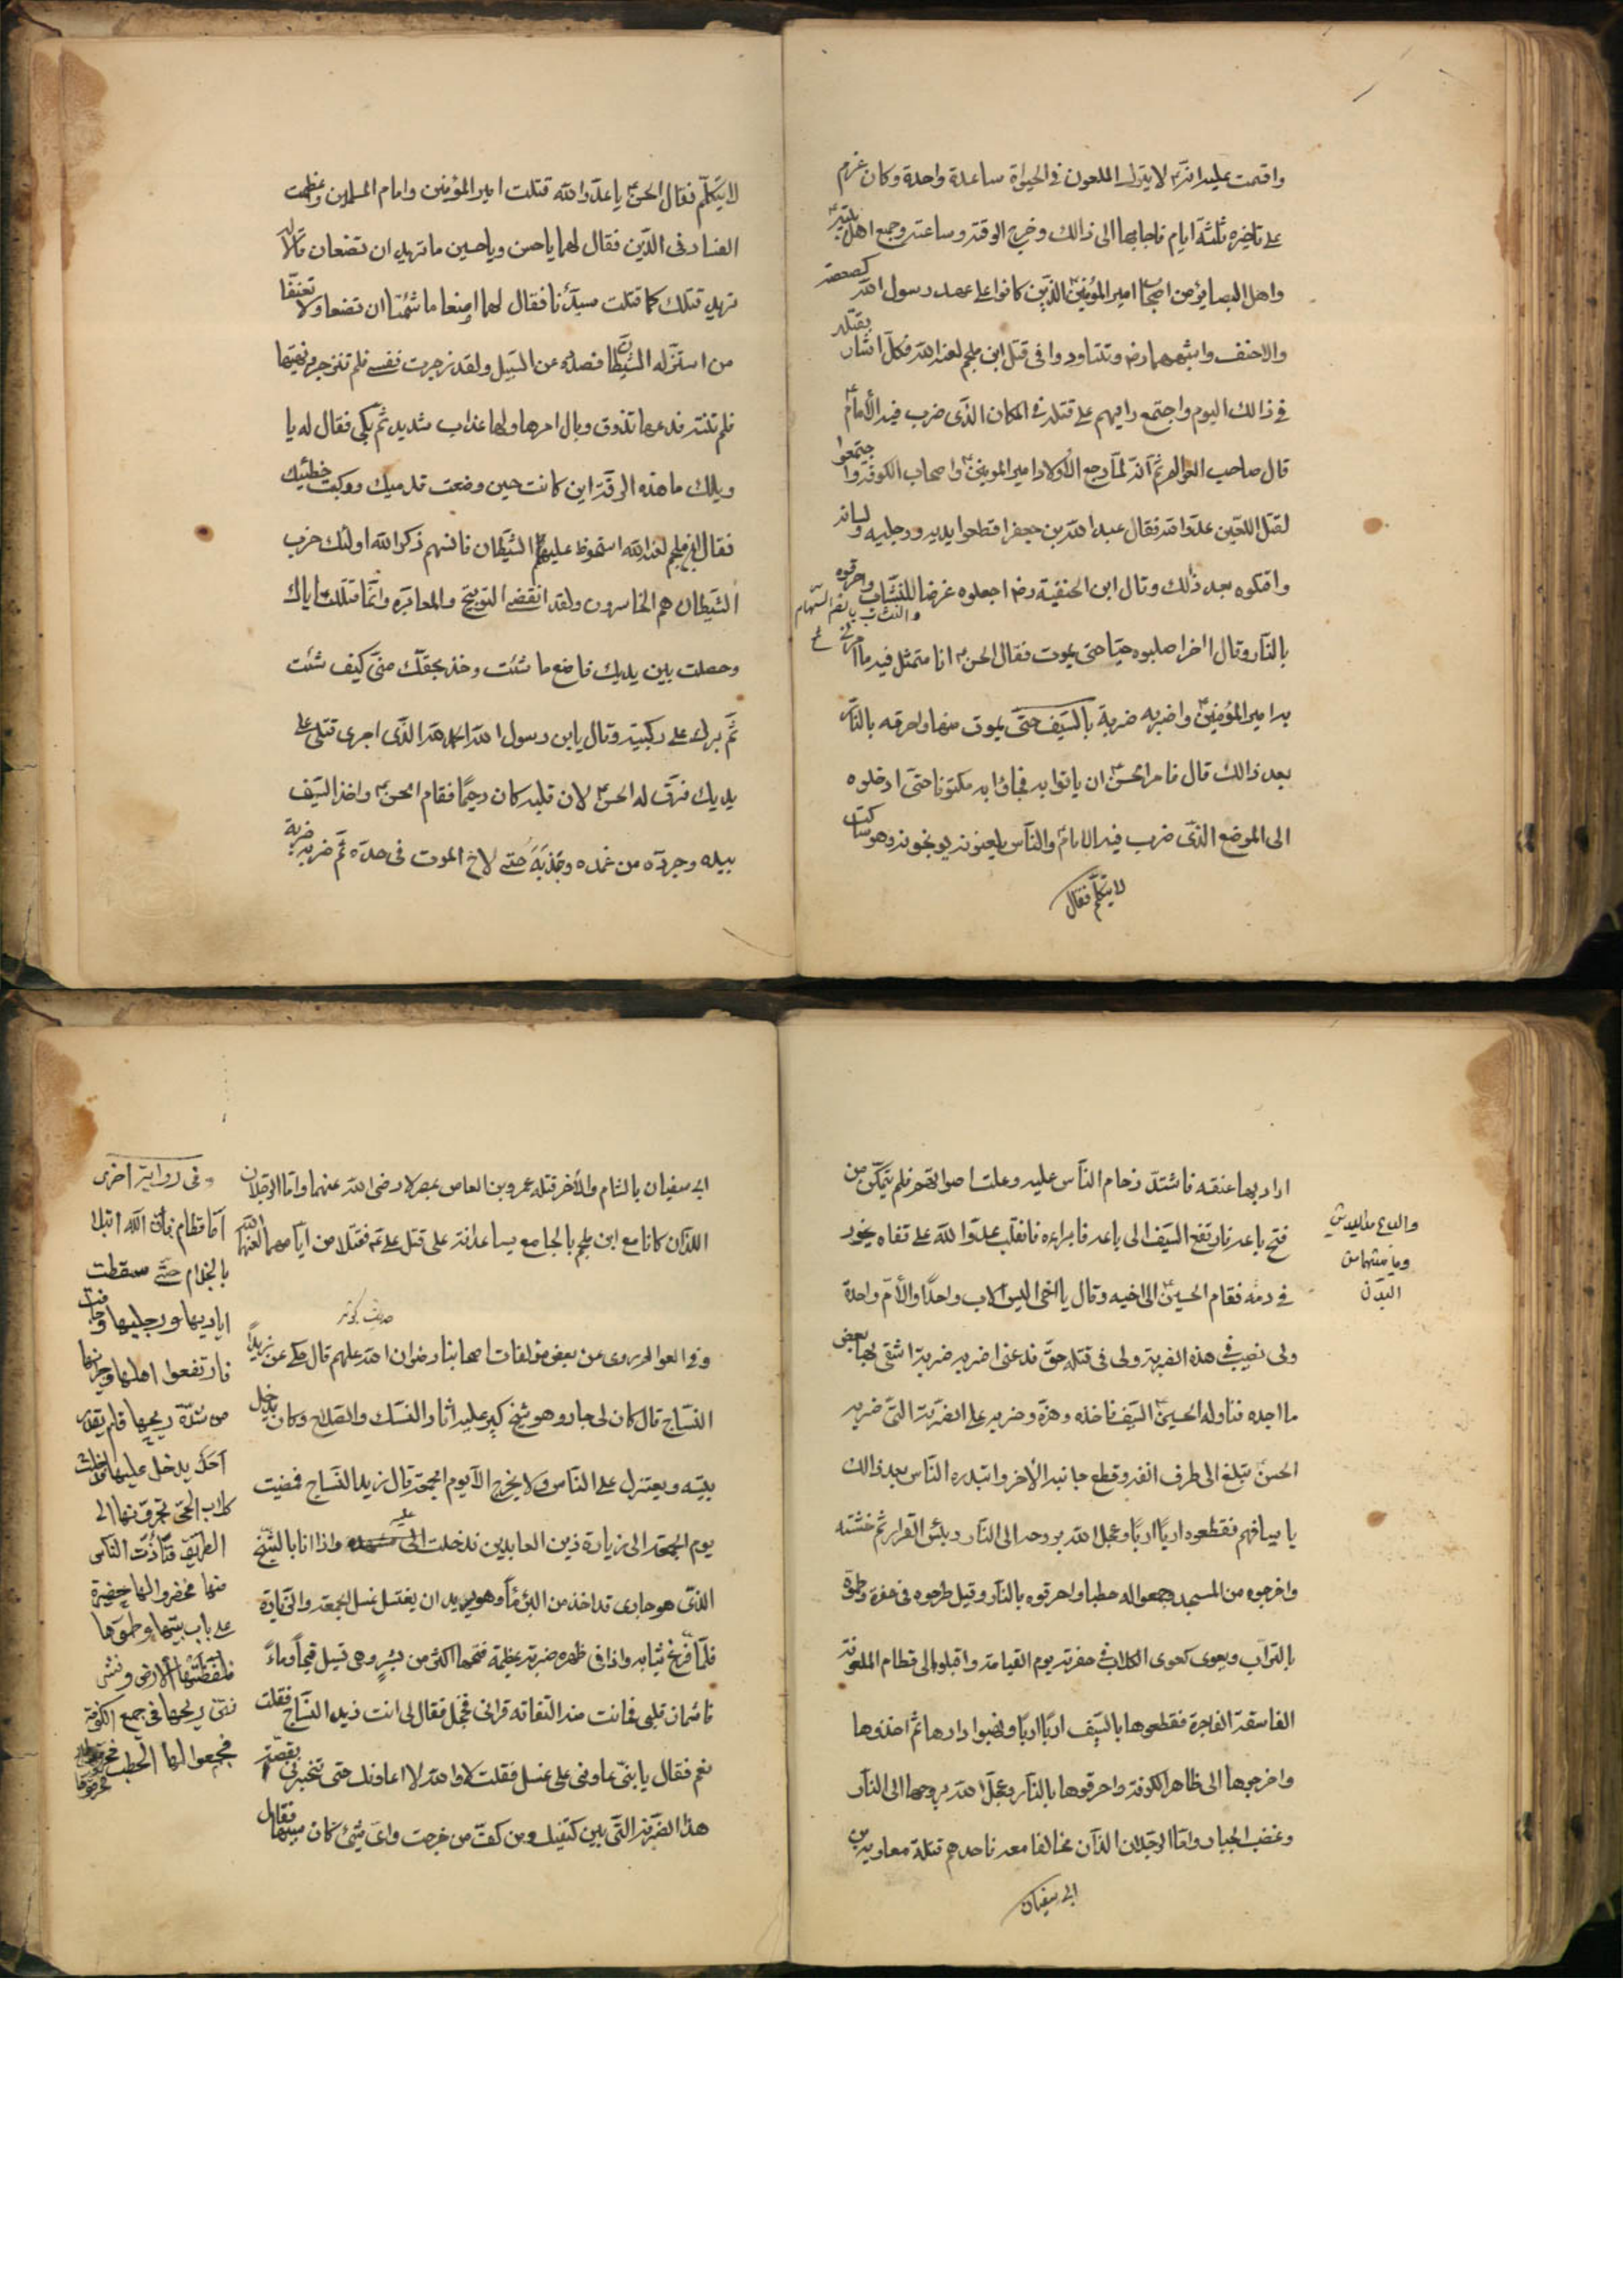 واقسمت عليه انه لا يترك الملعون في الحيوة ساعة واحدة وكان عزم
على تاخيره ثلثة ايام فاجابها الى ذالك وخرج الوقته وساعته وجمع اهل بيته
واهل البصاير من اصحاب امير المؤمنين الذين كانوا على عهد رسول الله كصعصعه
والاحنف واشبههما رض وتشاوروا في قتل ابن ملجم لعنه الله فكل اشار بقتله
في ذالك اليوم واجتمع رايهم على قتله في المكان الذي ضرب فيه الامام
قال صاحب العوالم ثم انه لما رجع الاولاد امير المومنين واصحاب الكوفة واجتمعوا
لقتل اللعين عدو الله فقال عبد الله بن جعفر اقطعوا يديه ورجليه ولسانه
واقتلوه بعد ذلك وقال ابن الحنفية رض اجعلوه غرضا للنشاب واحرقوه
والنشاب بالضم السهام
بالنار وقال اخر اصلبوه حيا حتى يموت فقال الحسن انا متمثل فيه ما امرني
به امير المؤمنين واضربه ضربة بالسيف حتى يموت منها واحرقه بالنار
بعد ذالك قال فامر الحسن ان ياتوا به فجاؤا به مكتوفا حتى ادخلوه
الى الموضع الذي ضرب فيه الامام والناس يلعنونه يوبخونه وهو ساكت
لا يتكلم فقال
لا يتكلم فقال الحسن يا عدو الله قتلت امير المؤمنين وامام المسلمين وعظمت
الفساد في الدين فقال لهما يا حسن ويا حسين ما تريد ان تضعان قالا له
نريد قتلك كما قتلت سيدنا فقال لهما اصنعا ما شئتما ان تضعا ولا تعنفا
من استزله الشيطان فصده عن السبيل ولقد زجرت نفسي فلم تنزجر ونهيتها
فلم تنته فدعها تذوق وبال امرها ولها عذاب شديد ثم بكى فقال له يا
ويلك ما هذه الرقة اين كانت حين وضعت قدميك وركبت خطيئتك
فقال ابن ملجم لعنه الله استحوذ عليهم الشيطان فانسهم ذكر الله اولئك حزب
الشيطان هم الخاسرون ولقد انقضى التوبيخ والمعايره وانما قتلت اباك
وحصلت بين يديك فاضع ما شئت وخذ بحقك مني كيف شئت
ثم برك على ركبتيه وقال يابن رسول الله الحمد لله الذي اجرى قتلى على
يديك فرق له الحسن لان قلبه كان رحيما فقام الحسن واخذ السيف
بيده وجرده من غمده حتى لاخ الموت في حده ثم ضربه ضربة
اراد بها عنقه فاشتد زحام الناس عليه وعلت اصواتهم فلم يتمكن من
فتح باعه فارتفع السيف الى باعه فابراءه فانقلب عدو الله على قفاه يخور
في دمه فقام الحسين الى اخيه وقال يا اخي اليس الاب واحدا والام واحدة
ولى نصيب في هذه الضربة ولى في قتله حق فدعني اضربه ضربة اشفي بها بعض
ما اجده فناوله الحسن السيف فاخذه وهزه وضربه على الضربة التي ضربه
الحسن فبلغ الى طرف انفه وقطع جانبه الأخر وابتدره الناس بعد ذالك
باسيافهم فقطعوه اربا اربا وعجل الله بروحه الى النار وبئس القرار ثم
واخرجوه من المسجد وجمعوا له حطبا واحرقوه بالنار وقيل طرحوه في حفرة وطموه
بالتراب وبعوى كعوى الكلاب في حفرته يوم القيامة واقبلوا الى قطام الملعونة
الفاسقة الفاجرة فقطعوها بالسيف اربا اربا ونهبوا دارها ثم اخذوها
واخرجوها الى ظاهر الكوفة واحرقوها بالنار وعجل الله بروحها الى النار
وغضب الجبار واما الرجلان الذان تحالفا معه فاحدهم قتله معاوية بن
ابي سفيان
والباع مد اليدين
وما بينهما من
البدن
ابي سفيان بالشام والأخر قتله عمرو بن العاص بمصر لا رضى الله عنهما واما الرجلان
اللذان كانا مع ابن ملجم بالجامع يساعدانه على قتل على ع فقتلا من ايامهما لعنهما الله
حديث
وفي العوالم روى عن بعض مؤلفات اصحابنا رضوان الله عليهم قال حكى عن زيد
النساج قال كان لي جار وهو شيخ كبير عليه اثار النسك والصلاح وكان يدخل
بيته ويعتزل على الناس ولا يخرج الا يوم الجمعة قال زيد النساج فمضيت
يوم الجمعة الى زيارة زين العابدين فدخلت الى مشهده واذا انا بالشيخ
الذي هو جارى قد اخذ من البئر ماء وهو يريد ان يغتسل غسل الجمعة والزيارة
فلما نزع ثيابه واذا في ظهره ضربة عظيمة فتحها اكثر من شبر وهى تسيل قيحا ومدة
فاشمأز قلبي منها فحانت منه التفاته فرانى فخجل فقال لى انت زيد النساج فقلت
نعم فقال يا بنى عاونى على غسلى فقلت لا والله لا اعاونك حتى تخبرنى بقصة
هذا الضربة التي بين كتفيك ومن كف من خرجت واى شئ كان سببها فقال
وفي رواية اخرى
اما قطام فان الله ابتلا
بالجذام حتى سقطت
اياديها ورجليها وجافت
فارتفعوا اهلها وجيرانها
من شدة ريحها فلم يقدر
احد يدخل عليها
كلاب الحى
الطريق فتأذت الناس
منها فحضروا لها حفيرة
على باب بيتها وطموها
فلفظتها الأرض ونتن
نتن ريحها في جمع الكوفة
فجمعوا لها الحطب